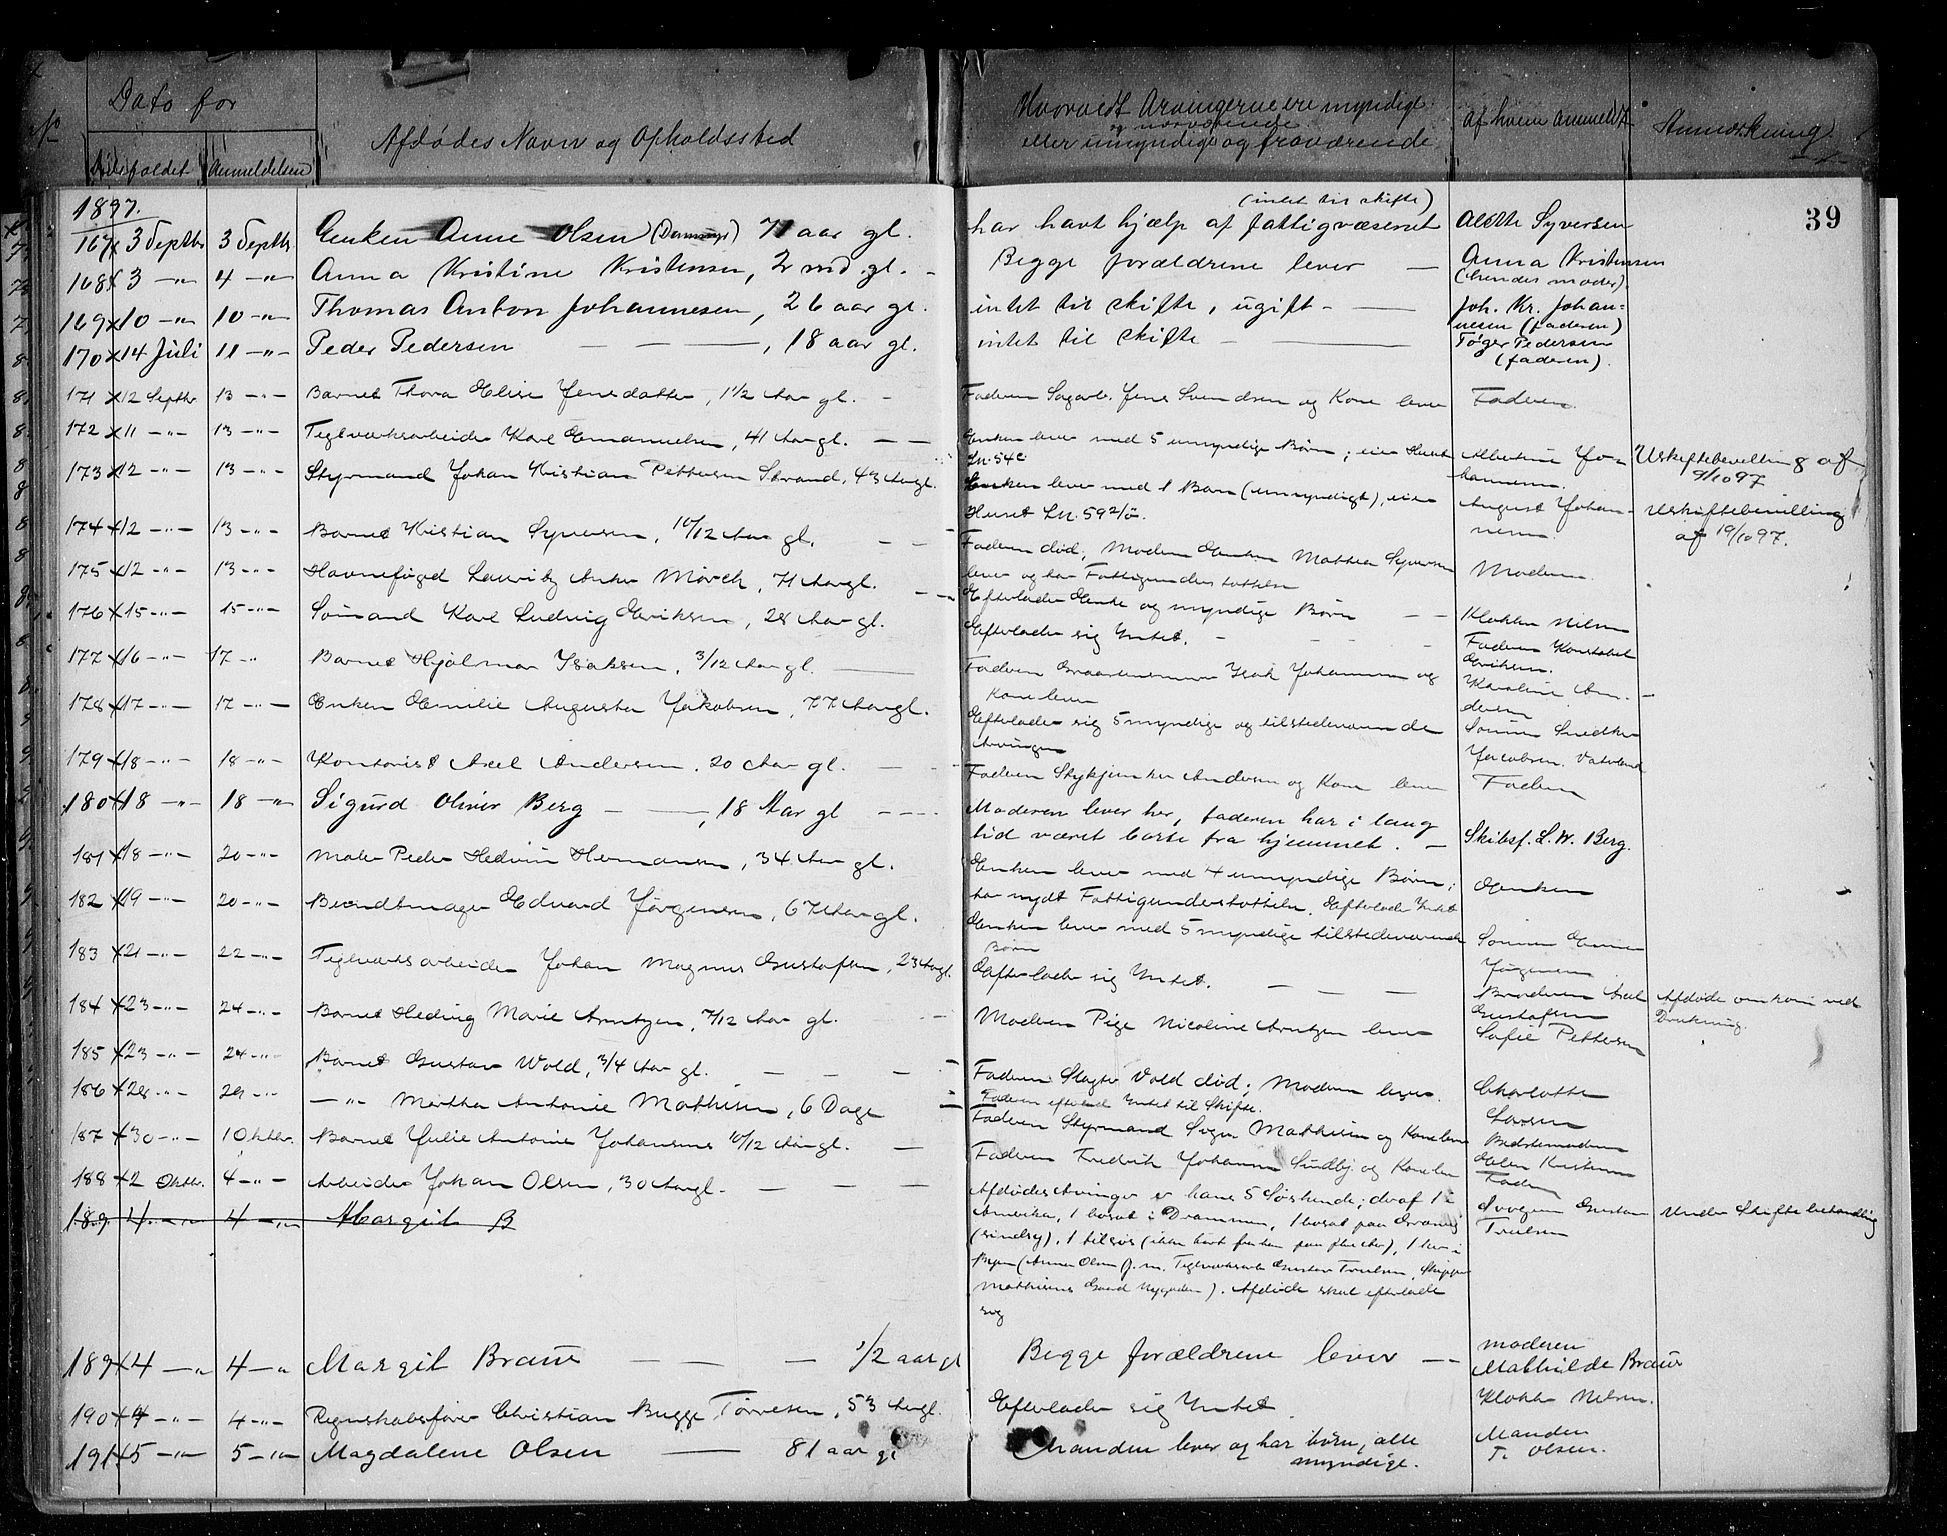 No
Dato for
Dødsfaldet
Anmeldelsen
Afdødes Navn og Opholdssted
Hvorvidt Arvingerne ere myndige
og nærværende
eller umyndige og fraværende
Af hvem anmeldt
Anmærkning
39
1897.
167 x 3 Septbr 3 Septbr. Enken Anne Olsen 71 aar gl.
(intet til skifte)
har havt hjælp af fattigvæsenet
Alette Syversen
168 x 3 -"- 4 -"- Anna Kristine Kristensen, 2 md. gl.
Begge forældrene lever
Anna Kristensen
(hendes moder)
169 x 10 -"- 10 -"- Thomas Anton Johannesen, 26 aar gl.
intet til skifte, ugift
Joh. Kr. Johan-
nesen (faderen)
170 x 14 Juli 11 -"- Peder Pedersen, 18 aar gl.
intet til skifte
Tøger Pedersen
(faderen).
171 x 12 Septbr 13 -"- Barnet Thora Elise Jensdatter, 1 1/2 Aar gl.
Faderen Sagarb. Jens Svendsen og Kone lever
Faderen.
172 x 11 -"- 13 -"- Teglværksarbeider Karl Emanuelsen, 41 Aar gl.
Enken lever med 5 umyndige Børn; eier Huset
Ln. 54c
Albertine Jo-
hannesen.
Uskiftebevilling af
9/10 97
173 x 12 -"- 13 -"- Styrmand Johan Kristian Pettersen Strand, 43 Aar gl.
Enken lever med 1 Barn (umyndigt), eier
Huset Ln. 592/ö.
August Johan-
nesen.
Uskiftebevilling
af 19/10 97.
174 x 12 -"- 13 -"- Barnet Kristian Syversen, 10/12 Aar gl.
Faderen død, Moderen Enken Mathea Syversen
lever og har Fattigunderstøttelse
Moderen.
175 x 12 -"- 13 -"- Havnefoged Lauritz Anker Mørch, 71 Aar gl.
Efterlader Enke og myndige Børn
Klokker Nilsen
176 x 15 -"- 15 -"- Sømand Karl Ludvig Eriksen, 28 Aar gl.
Efterlader sig Intet.
Faderen Konstabel
Eriksen.
177 x 16 -"- 17 -"- Barnet Hjalmar Isaksen, 3/12 Aar gl.
Faderen Isak Johansen og
Kone lever
Karoline An-
dersen
178 x 17 -"- 17 -"- Enken Emilie Augusta Jakobsen, 77 Aar gl.
Efterlader sig 5 myndige og tilstedeværende
Arvinger
Sønnen Snedker
Jacobsen. Vaterland
179 x 18 -"- 18 -"- Kontorist Axel Andersen, 20 Aar gl.
Faderen Stykjunker Andersen og Kone lever
Faderen
180 x 18 -"- 18 -"- Sigurd Oliver Berg, 18 Aar gl
Moderen lever her, faderen har i lang
tid været borte fra hjemmet.
Skibsf. L. W. Berg.
181 x 18 -"- 20 -"- Maler Peder Hedvin Hermansen, 34 Aar gl.
Enken lever med 4 umyndige Børn;
har nydt Fattigunderstøttelse. Efterlader Intet
Enken
182 x 19 -"- 20 -"- Bundtmager Edvard Jørgensen, 67 Aar gl.
Enken lever med 5 myndige tilstedeværende
Børn
Sønnen
Jørgensen
183 x 21 -"- 22 -"- Teglværksarbeider Johan Magnus Gustafsen, 23 Aar gl.
Efterlader sig Intet.
Broderen Axel
Gustafsen
Afdøde omkom ved
Drukning.
184 x 23 -"- 24 -"- Barnet Hedvig Marie Arntzen, 7/12 Aar gl.
Moderen Pige Nicoline Arntzen lever
Sofie Pettersen
185 x 23 -"- 24 -"- Barnet Gustav Wold, 3/4 Aar gl.
Faderen Slagter Wold død; Moderen lever.
Faderen efterlod Intet til Skifte.
Charlotte
Larsen
186 x 28 -"- 29 -"- -"- Martha Antonie Mathisen, 6 Dage
Faderen Styrmand Mathisen og Kone lever
Bedstemoderen
Kristensen
187 x 30 -"- 1 Oktbr. Barnet Julie Antonie Johansen 10/12 Aar gl.
Faderen Fredrik Johansen Sundby og Kone lever
Faderen
188 x 2 Oktbr. 4 -"- Arbeider Johan Olsen, 30 Aar gl.
Afdødes Arvinger er hans 5 Søskende; deraf 1 i
Amerika, 1 bosat i Drammen, 1 bosat paa
(sindsyg), 1 tilsjøs (ikke hørt fra ham paa flere Aar), 1 her i
Byen (Anna Olsen g. m. Teglværksarb. Gustav Truelsen, Skipper
Mathisens Gaard Nygaden). Afdøde skal efterlade
sig
Svogeren Gustav
Truelsen
Under Skiftebehandling
189. 4 -"- 4 -"- Margit B
189 x 4 -"- 4 -"- Margit Braue 1/2 aar gl
Begge forældrene lever
moderen
Mathilde Braue
190 x 4 -"- 4 -"- Regnskabsfører Christian Bugge Torvesen, 53 Aar gl.
Efterlader sig Intet
Klokker Nilsen.
191 x 5 -"- 5 -"- Magdalene Olsen 81 aar gl
Manden lever og har børn, alle
myndige.
Manden
T. Olsen.